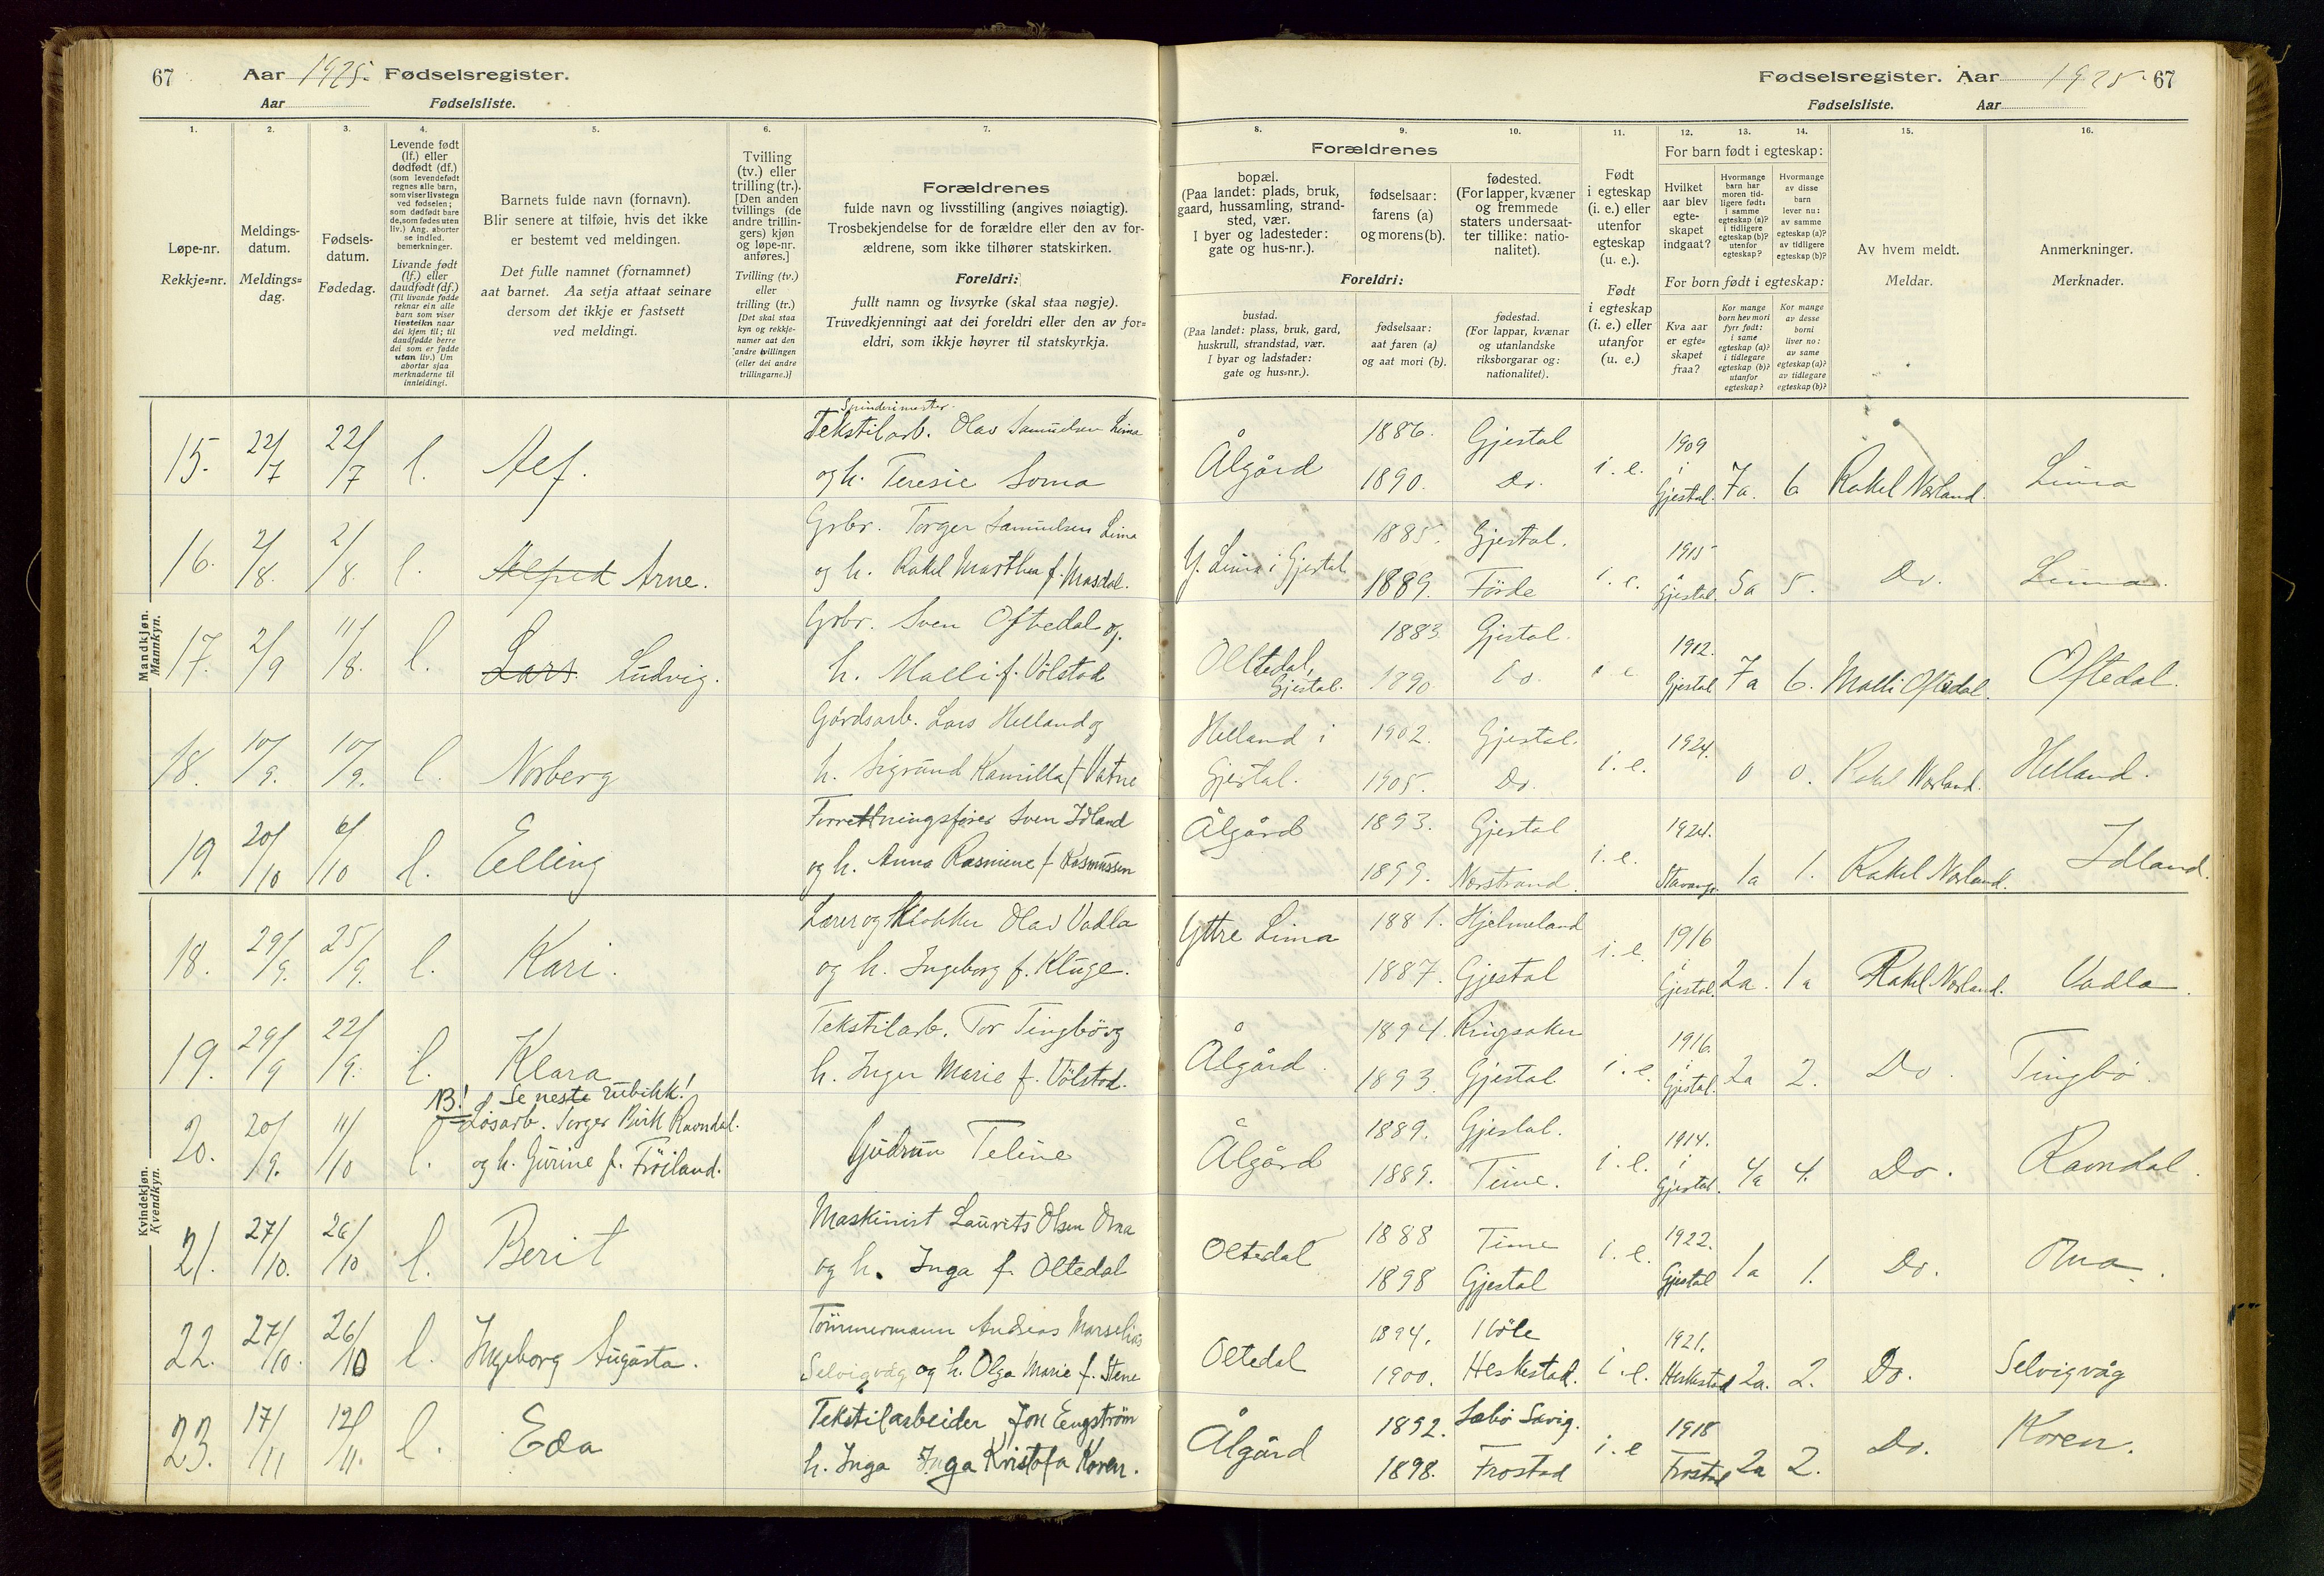 67 Aar 1925. Fødselsregister.
Aar Fødselsliste.
Fødselsregister. Aar 1925 67
Fødselsliste. Aar
1. 2. 3. 4. 5. 6. 7. 8. 9. 10. 11. 12. 13. 14. 15. 16.
Løpe-nr.
Rekkje=nr.
Meldings-
datum.
Meldings=
dag.
Fødsels-
datum.
Fødedag.
Levende født
(lf.) eller
dødfødt (df.)
(som levendefødt
regnes alle barn,
som viser livstegn
ved fødselen;
som dødfødt bare
de, som fødes uten
liv.) Ang. aborter
se indled.
bemerkninger.
Livande født
(lf.) eller
daudfødt (df.)
(Til livande fødde
reknar ein alle
barn som viser
livsteikn naar
dei kjem til; til
daudfødde berre
dei som er fødde
utan liv.) Um
abortar sjaa
merknaderne til
innleidingi.
Barnets fulde navn (fornavn).
Blir senere at tilføie, hvis det ikke
er bestemt ved meldingen.
Det fulle namnet (fornamnet)
aat barnet. Aa setja attaat seinare
dersom det ikkje er fastsett
ved meldingi.
Tvilling
(tv.) eller
trilling (tr.).
[Den anden
tvillings (de
andre trillin-
gers) kjøn
og løpe-nr.
anføres.]
Tvilling (tv.)
eller
trilling (tr.)
[Det skal staa
kyn og rekkje-
numer aat den
andre tvillingen
(eller dei andre
trillingarne.)]
Forældrenes
fulde navn og livsstilling (angives nøiagtig).
Trosbekjendelse for de forældre eller den av for-
ældrene, som ikke tilhører statskirken.
Foreldri:
fullt namn og livsyrke (skal staa nøgje).
Truvedkjenningi aat dei foreldri eller den av for=
eldri, som ikkje høyrer til statskyrkja.
Forældrenes
bopæl.
(Paa landet: plads, bruk,
gaard, hussamling, strand-
sted, vær.
I byer og ladesteder:
gate og hus-nr.).
fødselsaar:
farens (a)
og morens (b).
fødested.
(For lapper, kvæner
og fremmede
staters undersaat-
ter tillike: natio-
nalitet).
Foreldri:
bustad.
(Paa landet: plass, bruk, gard,
huskrull, strandstad, vær.
I byar og ladstader:
gate og hus=nr.).
fødselsaar:
aat faren (a)
og aat mori (b).
fødestad.
(For lappar, kvænar
og utanlandske
riksborgarar og:
nationalitet).
Født
i egteskap
(i. e.) eller
utenfor
egteskap
(u. e.).
Født
i egteskap
(i. e.) eller
utanfor
(u. e.)
For barn født i egteskap:
Hvilket
aar blev
egte-
skapet
indgaat?
Hvormange
barn har
moren tid-
ligere født:
i samme
egteskap (a)?
i tidligere
egteskap (b)?
utenfor
egteskap?
Hvormange
av disse
barn
lever nu:
av samme
egteskap (a)?
av tidligere
egteskap (b)?
For born født i egteskap:
Kva aar
er egte=
skapet
fraa?
Kor mange
born hev mori
fyrr født:
i same
egteskap (a)?
i tidlegare
egteskap (b)?
utanfor
egteskap?
Kor mange
av desse
borni
liver no:
av same
egteskap (a)?
av tidlegare
egteskap (b)?
Av hvem meldt.
Meldar.
Anmerkninger.
Merknader.
Mandkjøn.
Mannkyn.
Spinderimester.
15. 22/7 22/7 l. Alf. Tekstilarb. Olav Samuelsen Lima
og h. Teresie Soma
Ålgård 1886. Gjestal
1890. Do. i. e. 1909 i Gjestal. 7a. 6 Rakel Norland. Lima
16. 2/8. 2/8. l. Alfred Arne. Grbr. Torger Samuelsen Lima
og h. Rakel Marthea f. Masdal.
Y. Lima i Gjestal 1885. Gjestal.
1889. Förde i. e. 1915 i Gjestal. 5a 5. Do. Lima.
17. 2/9 11/8. l. Lars Ludvig. Grbr. Sven Oftedal og
h. Malli f. Völstad
Oltedal, Gjestal. 1883 Gjestal.
1890 Do. i e 1912. Gjestal 7a 6. Malli Oftedal. Oftedal.
18. 10/9. 10/9. l. Norberg Gårdsarb. Lars Helland og
h. Sigrund Kamilla f. Vatne
Helland i Gjestal. 1902. Gjestal.
1905. Do. i. e. 1924. 0 0. Rakel Norland. Helland.
19. 20/10 6/10 l. Elling Forretningsfører Sven Idland
og h. Anna Rasmine f. Rasmussen
Ålgård 1893. Gjestal
1899. Nerstrand. i. e. 1924. Stavanger 1a 1. Rakel Norland. Idland.
Kvindekjøn.
Kvendkyn.
18. 29/9. 25/9. l. Kari. Lærer og klokker Olav Vadla
og h. Ingeborg f. Kluge.
Yttre Lima 1881. Hjelmeland
1887. Gjestal i. e. 1916 i Gjestal. 2a. 1a Rakel Norland. Vadla.
19. 29/9 22/9. l. Klara Tekstilarb. Tor Tingbö og
h. Inger Marie f. Völstad.
Ålgård. 1894. Ringsaker
1893. Gjestal i. e. 1916. i Gjestal. 2a 2. Do. Tingbö.
NB! Se neste rubikk!
20. 20/9. 11/10 l. Løsarb. Torger Birk Ravndal.
og h. Gurine f. Fröiland. Gudrun Teline
Ålgård 1889. Gjestal.
1889. Time. i. e. 1914. i Gjestal. 4a 4. Do. Ravndal.
21. 27/10. 26/10 l. Berit Maskinist Laurits Olsen Oma
og h. Inga f. Oltedal
Oltedal 1888 Time
1898 Gjestal i. e. 1922. Gjestal 1a 1. Do. Oma.
22. 27/10. 26/10 l. Ingeborg Augusta. Tömmermann Andreas Marselius
Selvigvåg og h. Olga Marie f. Stene
Oltedal 1894. Höle
1900. Heskestad. i. e. 1921. Heskestad 2a. 2. Do. Selvigvåg
23. 17/11 12/11. l. Eda Tekstilarbeider Jon Engström
h. Inga Inga Kristofa Koren.
Ålgård 1892.
1898. Frostad i. e 1918 Frostad 2a 2. Do. Koren.